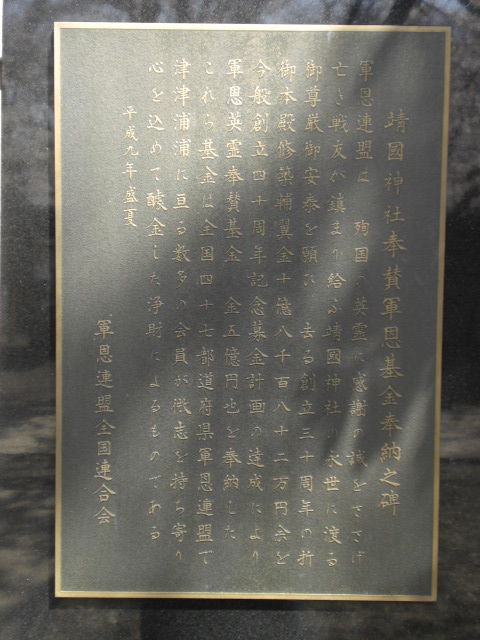 靖國神社奉賛軍恩基金奉納之碑
軍恩連盟は 殉国の英霊に感謝の誠をささげ
亡き戦友が鎮まり給ふ靖國神社の永世に渡る
御尊厳御安泰を願ひ 去る創立三十周年の折
御本殿修築輔翼金十億八千百八十二万円余を
今般創立四十周年記念募金計画の達成により
軍恩英霊奉賛基金 金五億円也を奉納した
これら基金は全国四十七都道府県軍恩連盟で
津津浦浦に亘る数多の会員が微志を持ち寄り
心を込めて醵金した浄財によるものである
平成九年盛夏
軍恩連盟全国連合会